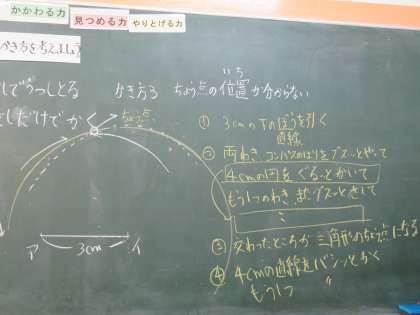 かかわる力
見つめる力
やりとげる力
き方を考えましょう
してうつしとる
かき方3 ちょう点の位置が分からない
いち
だけでかく
ちょう点
① 3cmの下のほうを引く
直線
② 両わき、コンパスのはりをブスッとやって
4cmの円をぐるっとかいて
もう1つのわき ブスッとさして
〃
③ 交わったところが三角形のちょう点になる
④ 4cmの直線をバシッとかく
もう1つ 〃
ア 3cm イ